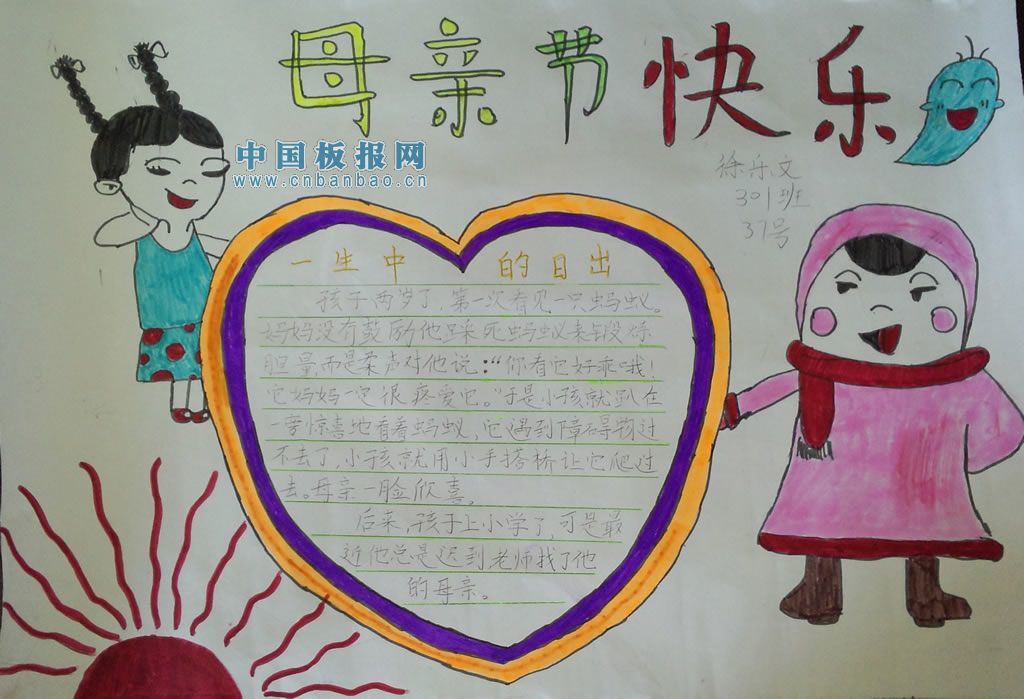 母亲节快乐
中国板报网
www.cnbanbao.cn
徐乐文
301班
37号
一生中 的日出
孩子两岁了,第一次看见一只蚂蚁。
妈妈没有鼓励他踩死蚂蚁来锻炼
胆量而是柔声对他说:“你看它好乖哦!
它妈妈一定很疼爱它。”于是小孩就趴在
一旁惊喜地看着蚂蚁,它遇到障碍物过
不去了,小孩就用小手搭桥让它爬过
去。母亲一脸欣喜。
后来,孩子上小学了,可是最
近他总是迟到老师找了他
的母亲。